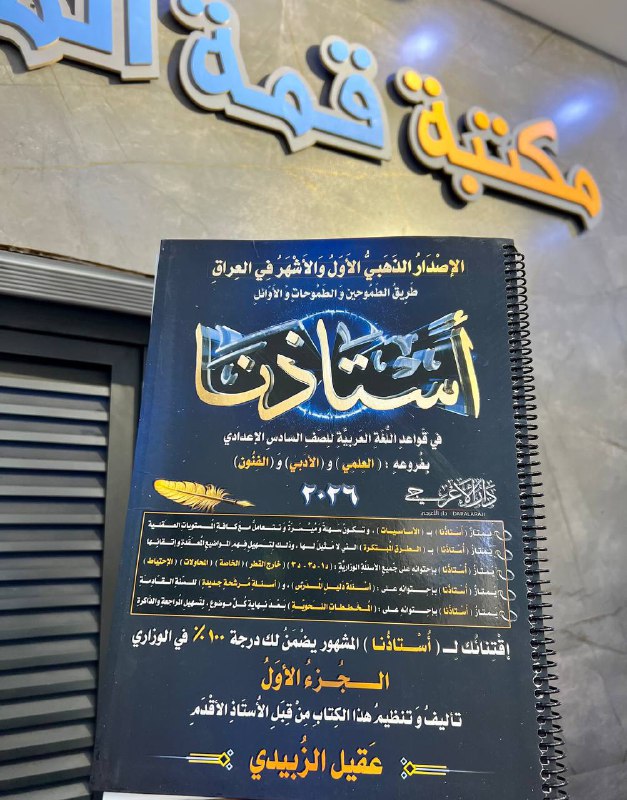 مكتبة قمة
الإصْدَارُ الذَّهَبيُّ الأَوَلُ وَالأَشْهَرُ في العِراقِ
طَرِيقُ الطَمُوحين وَ الطَمُوحات وَ الأَوائل
أُستاذُنَا
في قَواعدِ اللُّغة العربيَّة للصفِ السادس الإعدادي
بفُروعه : (العلمي) وَ (الأدبي) وَ (الفنُون)
٢٠٢٦
دَارُ الأَعْرَجِي
DAR ALARAJI
يَمتازُ ( أُستاذُنا ) بـ ( الأساسيات ) ، وَ تكُون سَهلة وَ مُيسَرة وَ تتعامل معَ كافة المستويات العقلية
يَمتازُ ( أُستاذُنا ) بـ ( الطرق المبتكرة ) التي لا مَثيلَ لها ، وذلك لتسهيل فهم المواضيع المعقدة وإتقانها
يَمتازُ ( أُستاذُنا ) بإحتوائه على جَميع الأسئلة الوزاريَّة : ( د١ - د٢ - د٣ ) ( خارج القطر ) ( الخاصة ) ( المحاولات ) ( الإحتياط )
يَمتازُ ( أُستاذُنا ) بإحتوائه على : ( أسئلة دَليل المدَرّس ) ، وَ ( أسئلة مُرشحة جديدة ) للسنة القادمة
يَمتازُ ( أُستاذُنا ) بإحتوائه على : ( المخططات النحويَّة ) بَعدَ نهاية كُلّ موضوع ، لتسهيل المُراجعة والذاكرة
إقْتِنائك لـ ( أُسْتاذُنا ) المشهور يضْمَنُ لك درجة ١٠٠٪ في الوزاري
الـــجُــزءُ الأوَلُ
تأليفُ وَ تنظيمُ هذا الكِتاب مِنْ قِبَلِ الأُستاذِ الأَقْدَم
عَقيل الزُبيدي